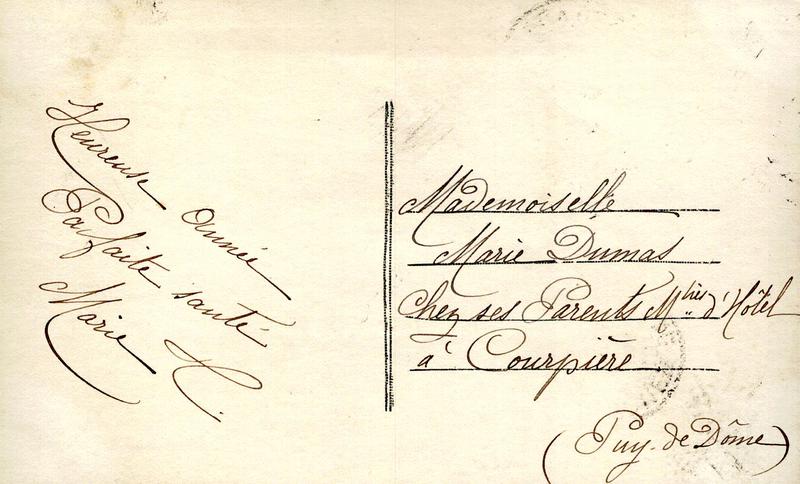 Heureuse année
Parfaite santé
Marie H.
Mademoiselle
Marie Dumas
chez ses Parents Mtres d'Hôtel
à Courpière
(Puy-de Dôme)